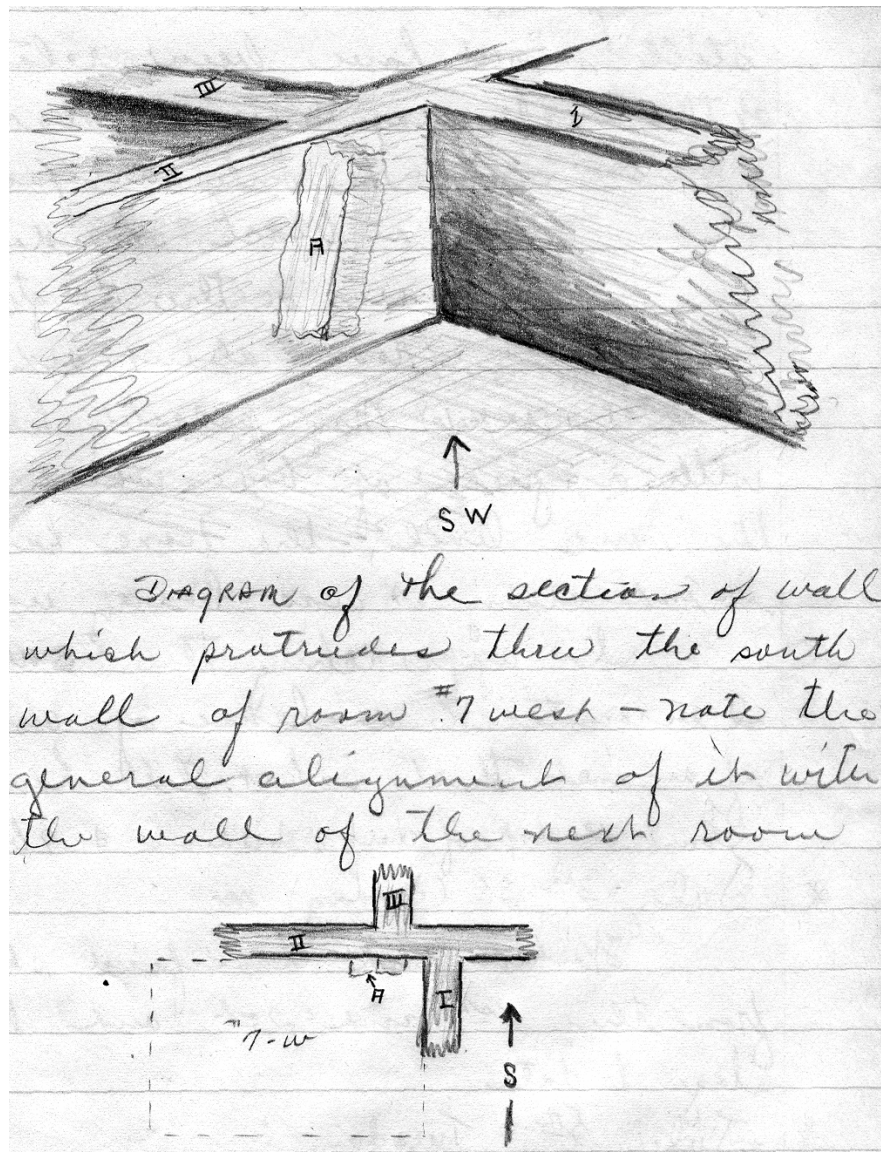 III
I
II
A
SW
DIAGRAM of the section of wall
which protrudes thru the south
wall of room #7 west – note the
general alignment of it with
the wall of the next room
III
II
A
I
"7-W
S